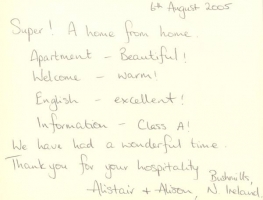 6th August 2005
Super! A home from home.
Apartment - Beautiful!
Welcome - warm!
English - excellent!
Information - Class A!
We have had a wonderful time.
Thankyou for your hospitality
Alistair + Alison, Bushmills,
N Ireland.